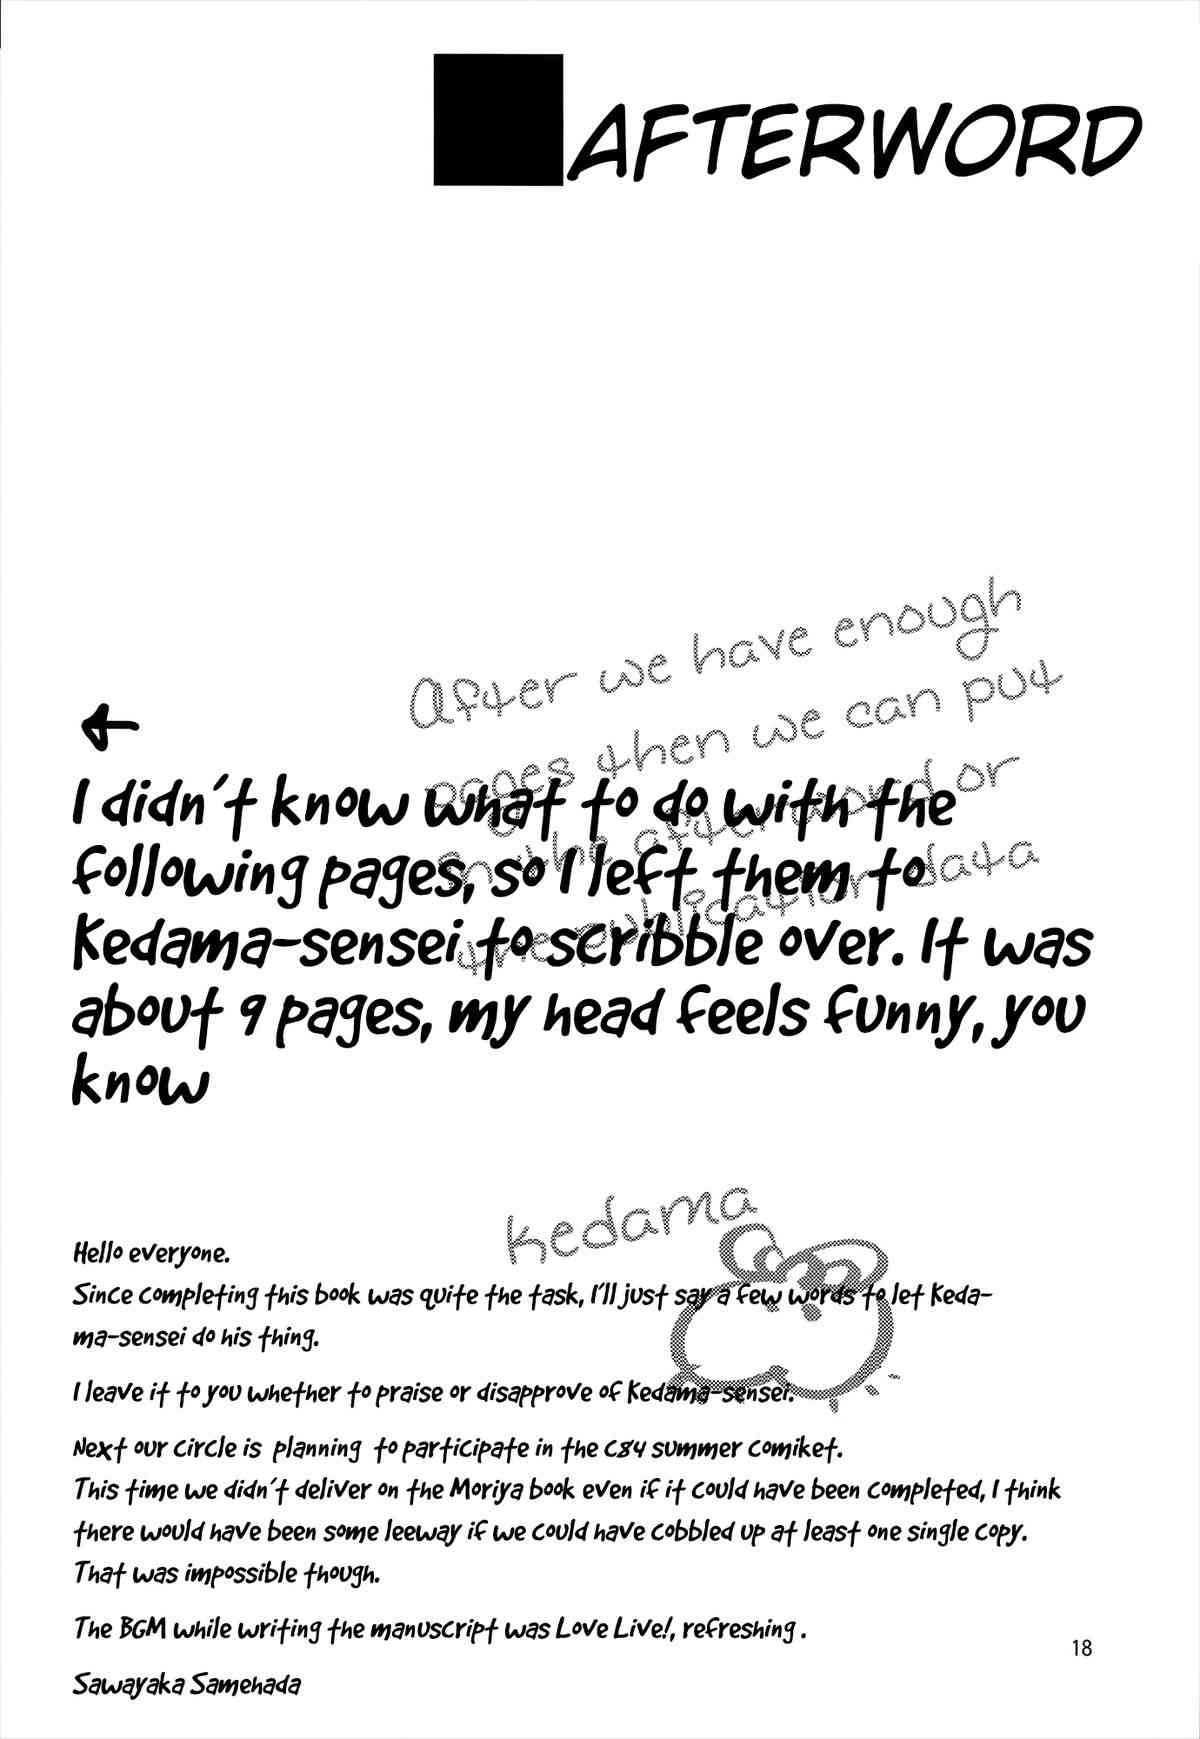 AFTERWORD
After we have enough
pages then we can put
in the after word or
the publication data
←
I didn't know what to do with the
following pages, so I left them to
Kedama-sensei to scribble over. It was
about 9 pages, my head feels funny, you
know
kedama
Hello everyone.
Since completing this book was quite the task, I'll just say a few words to let Keda-
ma-sensei do his thing.
I leave it to you whether to praise or disapprove of Kedama-sensei.
Next our circle is planning to participate in the C84 summer comiket.
This time we didn't deliver on the Moriya book even if it could have been completed, I think
there would have been some leeway if we could have cobbled up at least one single copy.
That was impossible though.
The BGM while writing the manuscript was Love Live!, refreshing.
18
Sawayaka Samehada